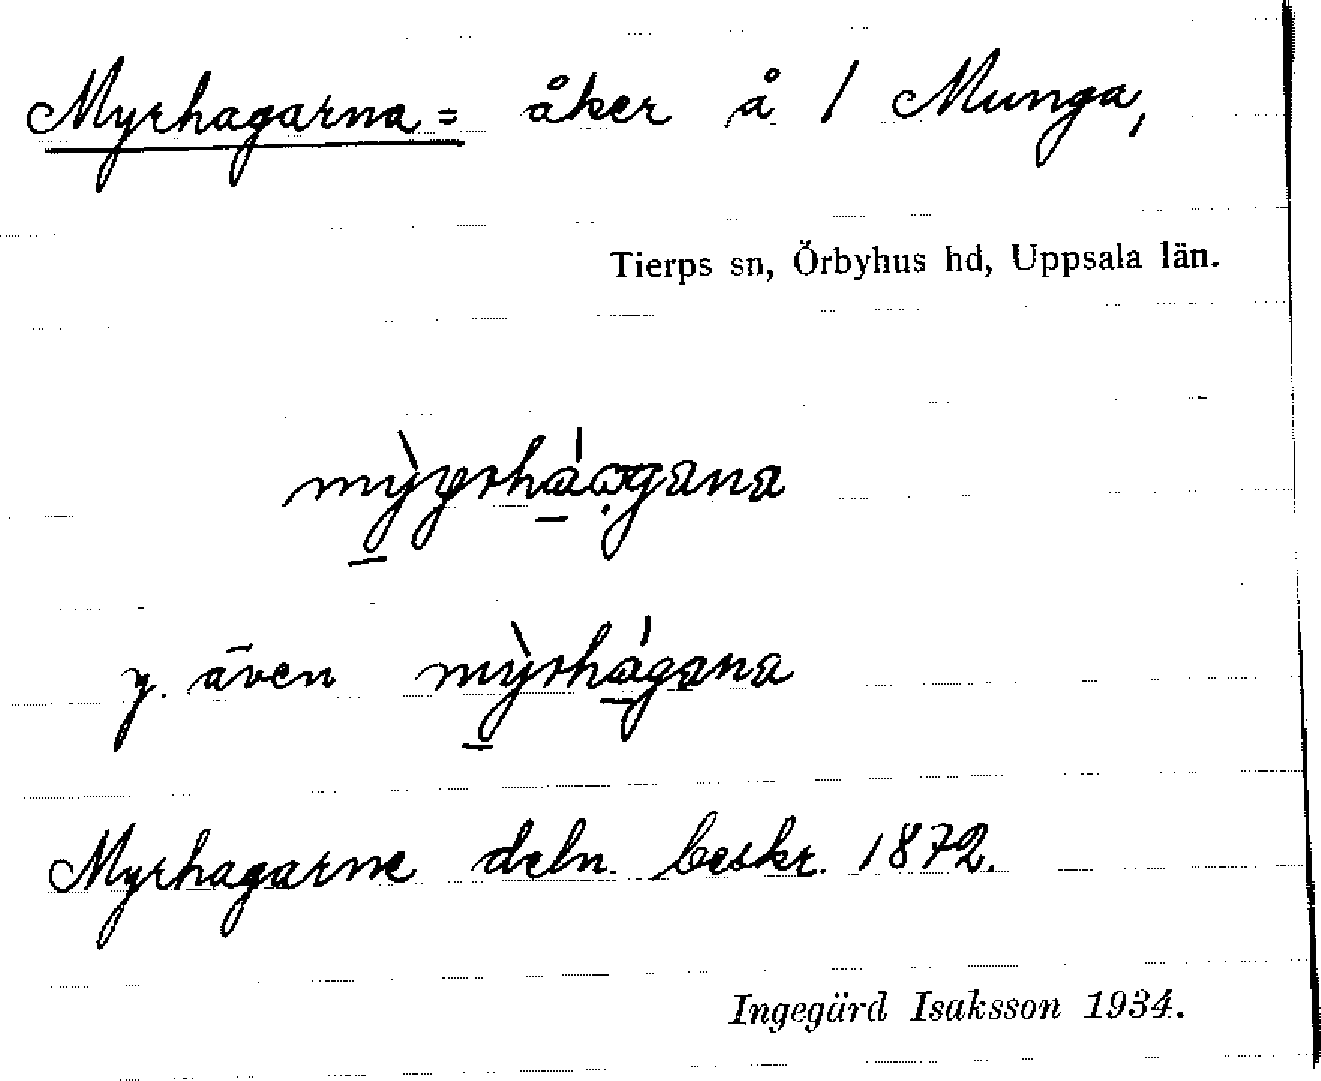 Myrhagarna = åker å 1 Munga,
Tierps sn, Örbyhus hd, Uppsala län.
y. även
Myrhagarne deln. beskr. 1872.
Ingegärd Isaksson 1934.